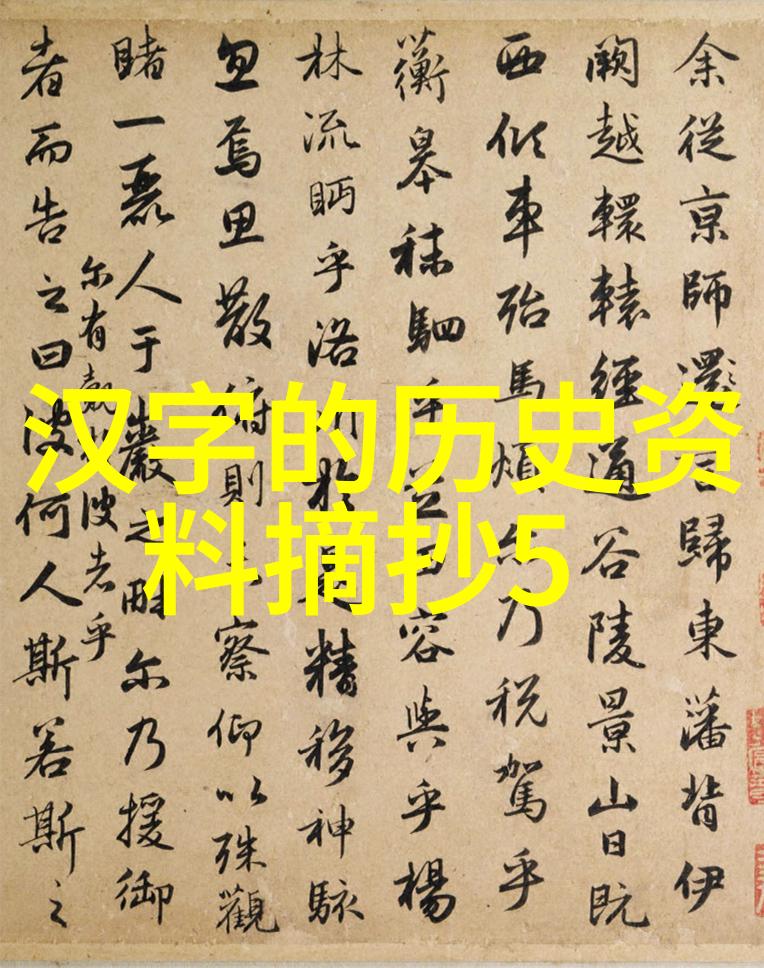 汉字的历史资
料摘抄5
余從京師還言歸東藩背伊
闕越轘轅經通谷陵景山日既
西傾車殆馬煩尔乃稅駕乎
蘅皋秣駟乎芝田容與乎楊
林流眄乎洛川於是精移神駭
忽焉思散俯則未察仰以殊觀
睹一麗人于巖之畔尔乃援御
尔有覿於彼者乎
者而告之曰彼何人斯若斯之